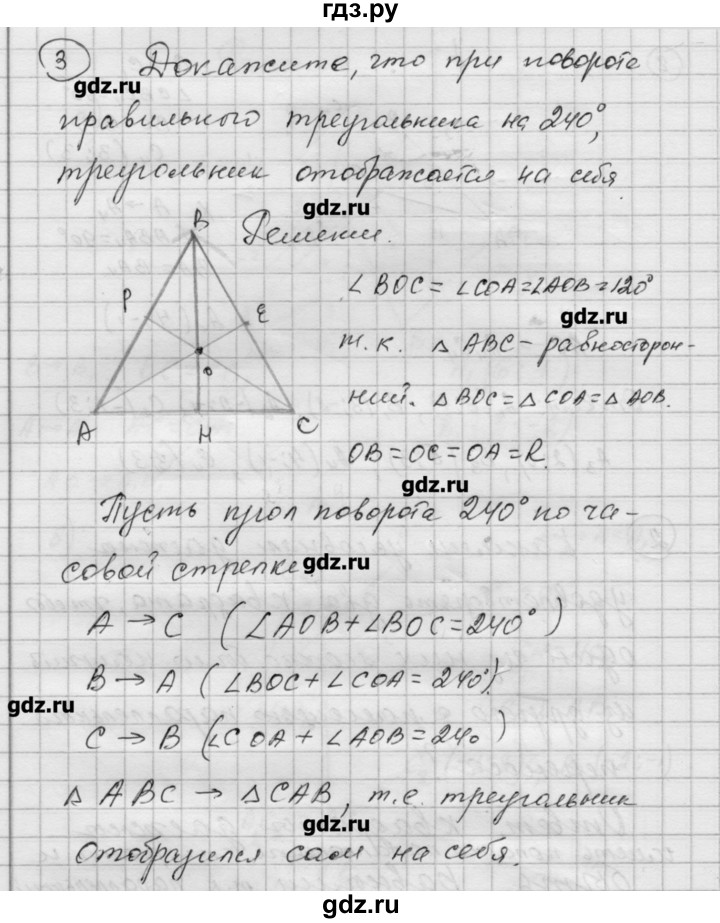 гдз.ру
3 Докажите, что при повороте
gdz.ru
правильного треугольника на 240°,
треугольник отображается на себя
gdz.ru
B Решении.
∠BOC = ∠COA = ∠AOB = 120°
P E
gdz.ru
т.к. △ ABC – равносторон-
O
ний. △ BOC = △ COA = △ AOB.
A H C
OB = OC = OA = R.
gdz.ru
Пусть угол поворота 240° по ча-
совой стрелке gdz.ru
A → C (∠AOB + ∠BOC = 240°)
B → A (∠BOC + ∠COA = 240°).
gdz.ru
C → B (∠COA + ∠AOB = 240)
△ ABC → △ CAB, т.е. треугольник
gdz.ru
Отобразился сам на себя.